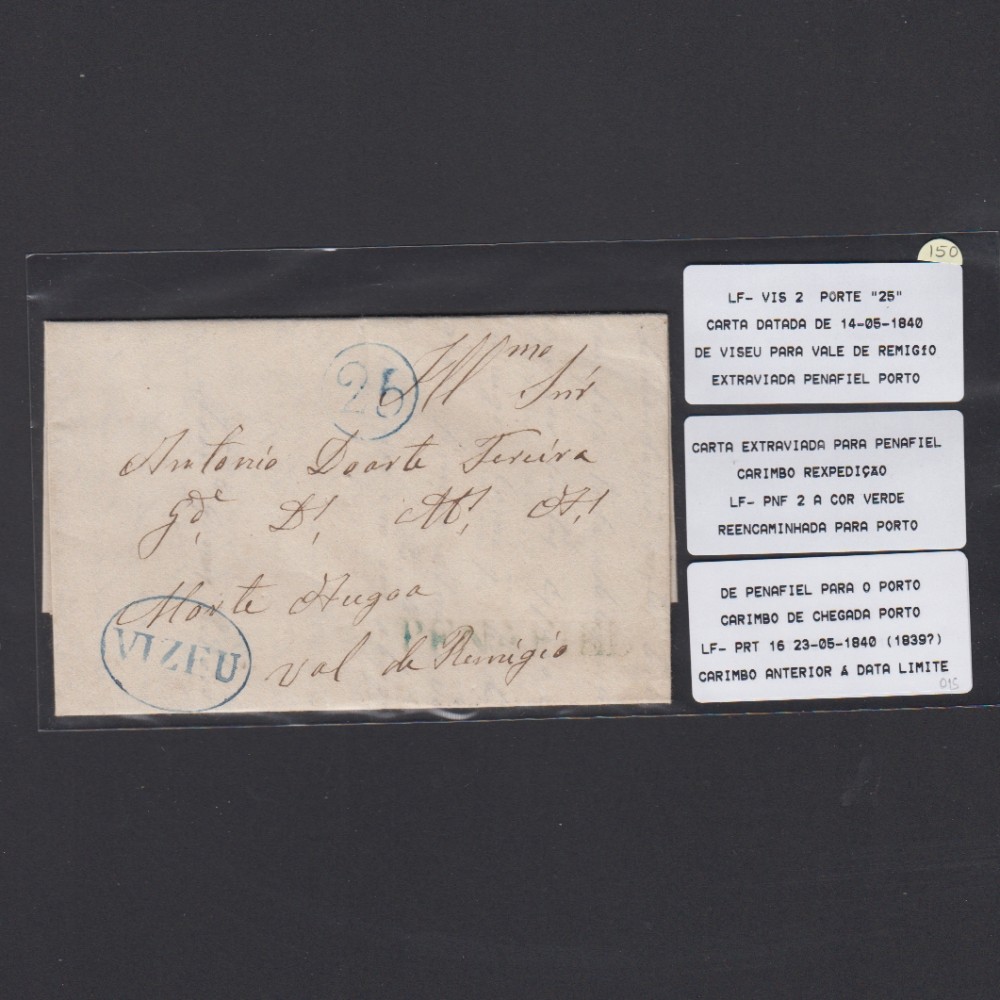 150
LF- VIS 2 PORTE "25"
CARTA DATADA DE 14-05-1840
DE VISEU PARA VALE DE REMIGíO
EXTRAVIADA PENAFIEL PORTO
CARTA EXTRAVIADA PARA PENAFIEL
CARIMBO REXPEDIÇãO
LF- PNF 2 A COR VERDE
REENCAMINHADA PARA PORTO
DE PENAFIEL PARA O PORTO
CARIMBO DE CHEGADA PORTO
LF- PRT 16 23-05-1840 (1839?)
CARIMBO ANTERIOR á DATA LIMITE
015
25
Illmo Snr
Antonio Doarte Fereira
Gde D! M! A!
Morte Augoa
VIZEU
Val de Remigio